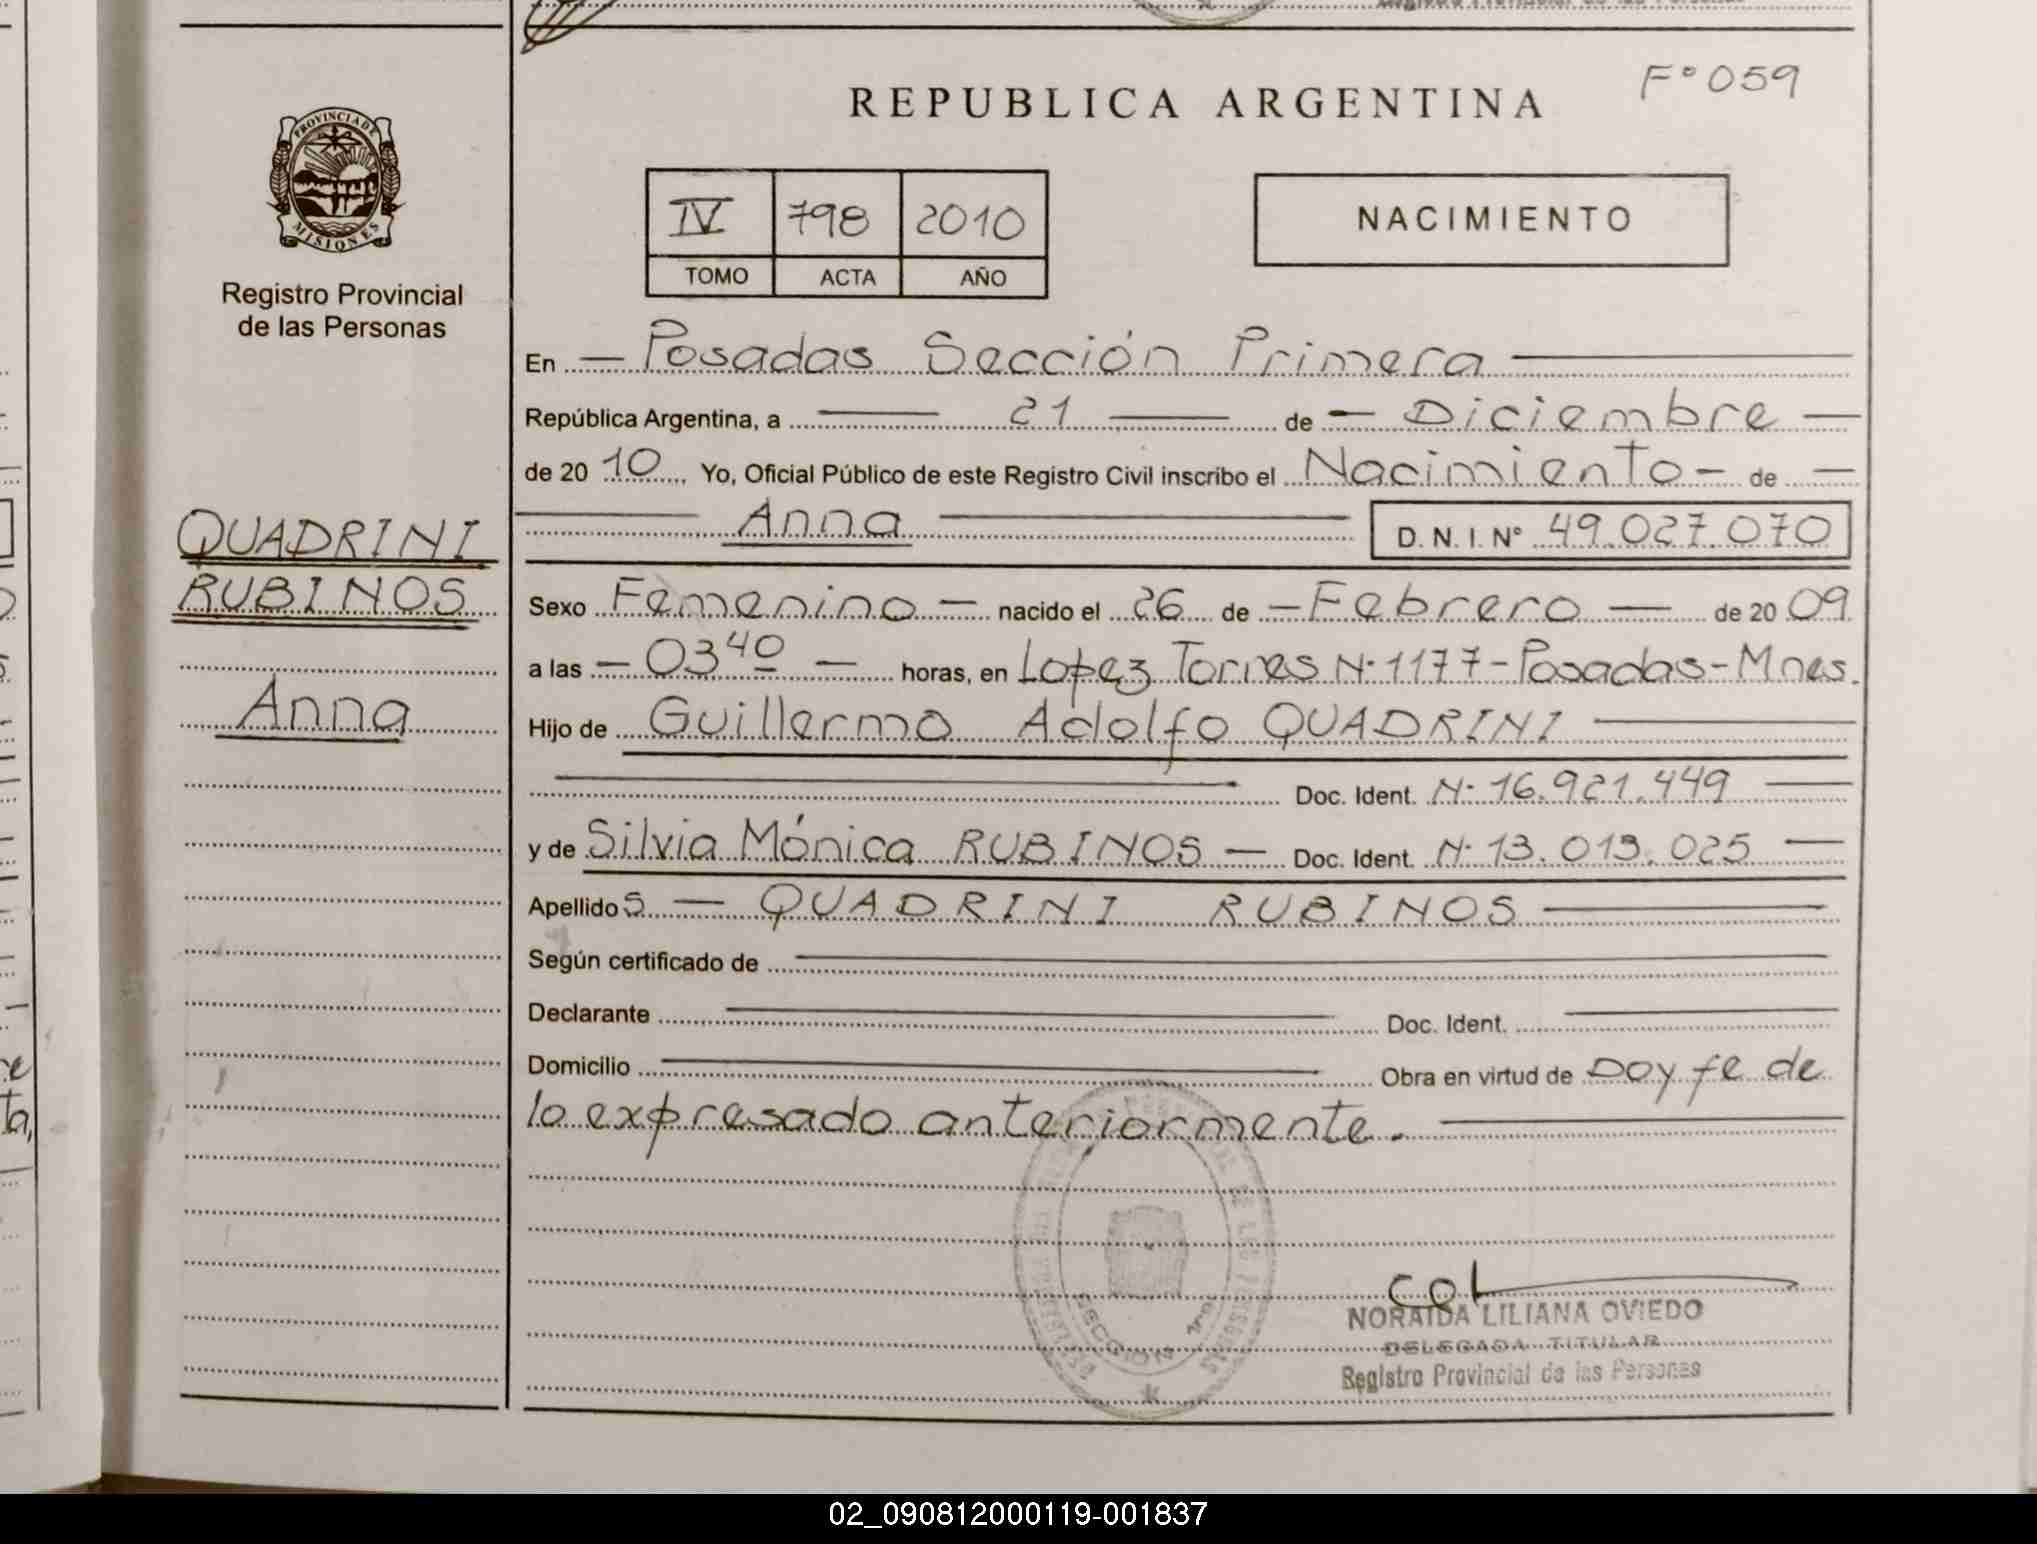 REPUBLICA ARGENTINA
F° 059
PROVINCIA DE
MISIONES
Registro Provincial
de las Personas
IV 798 2010
TOMO ACTA AÑO
NACIMIENTO
En — Posadas Sección Primera —
República Argentina, a — 21 — de — Diciembre —
de 2010 Yo, Oficial Público de este Registro Civil inscribo el Nacimiento — de —
— Anna — D.N.I. N° 49.027.070
QUADRINI
RUBINOS
Anna
Sexo Femenino — nacido el 26 de — Febrero — de 2009
a las — 03⁴⁰ — horas, en Lopez Torres N· 1177 - Posadas - Mnes.
Hijo de Guillermo Adolfo QUADRINI —
— Doc. Ident. N· 16.921.449 —
y de Silvia Mónica RUBINOS — Doc. Ident. N· 13.013.025 —
Apellidos — QUADRINI RUBINOS —
Según certificado de —
Declarante — Doc. Ident. —
Domicilio — Obra en virtud de Doy fe de
lo expresado anteriormente. —
SECCION
NORAIDA LILIANA OVIEDO
DELEGADA TITULAR
Registro Provincial de las Personas
02_090812000119-001837